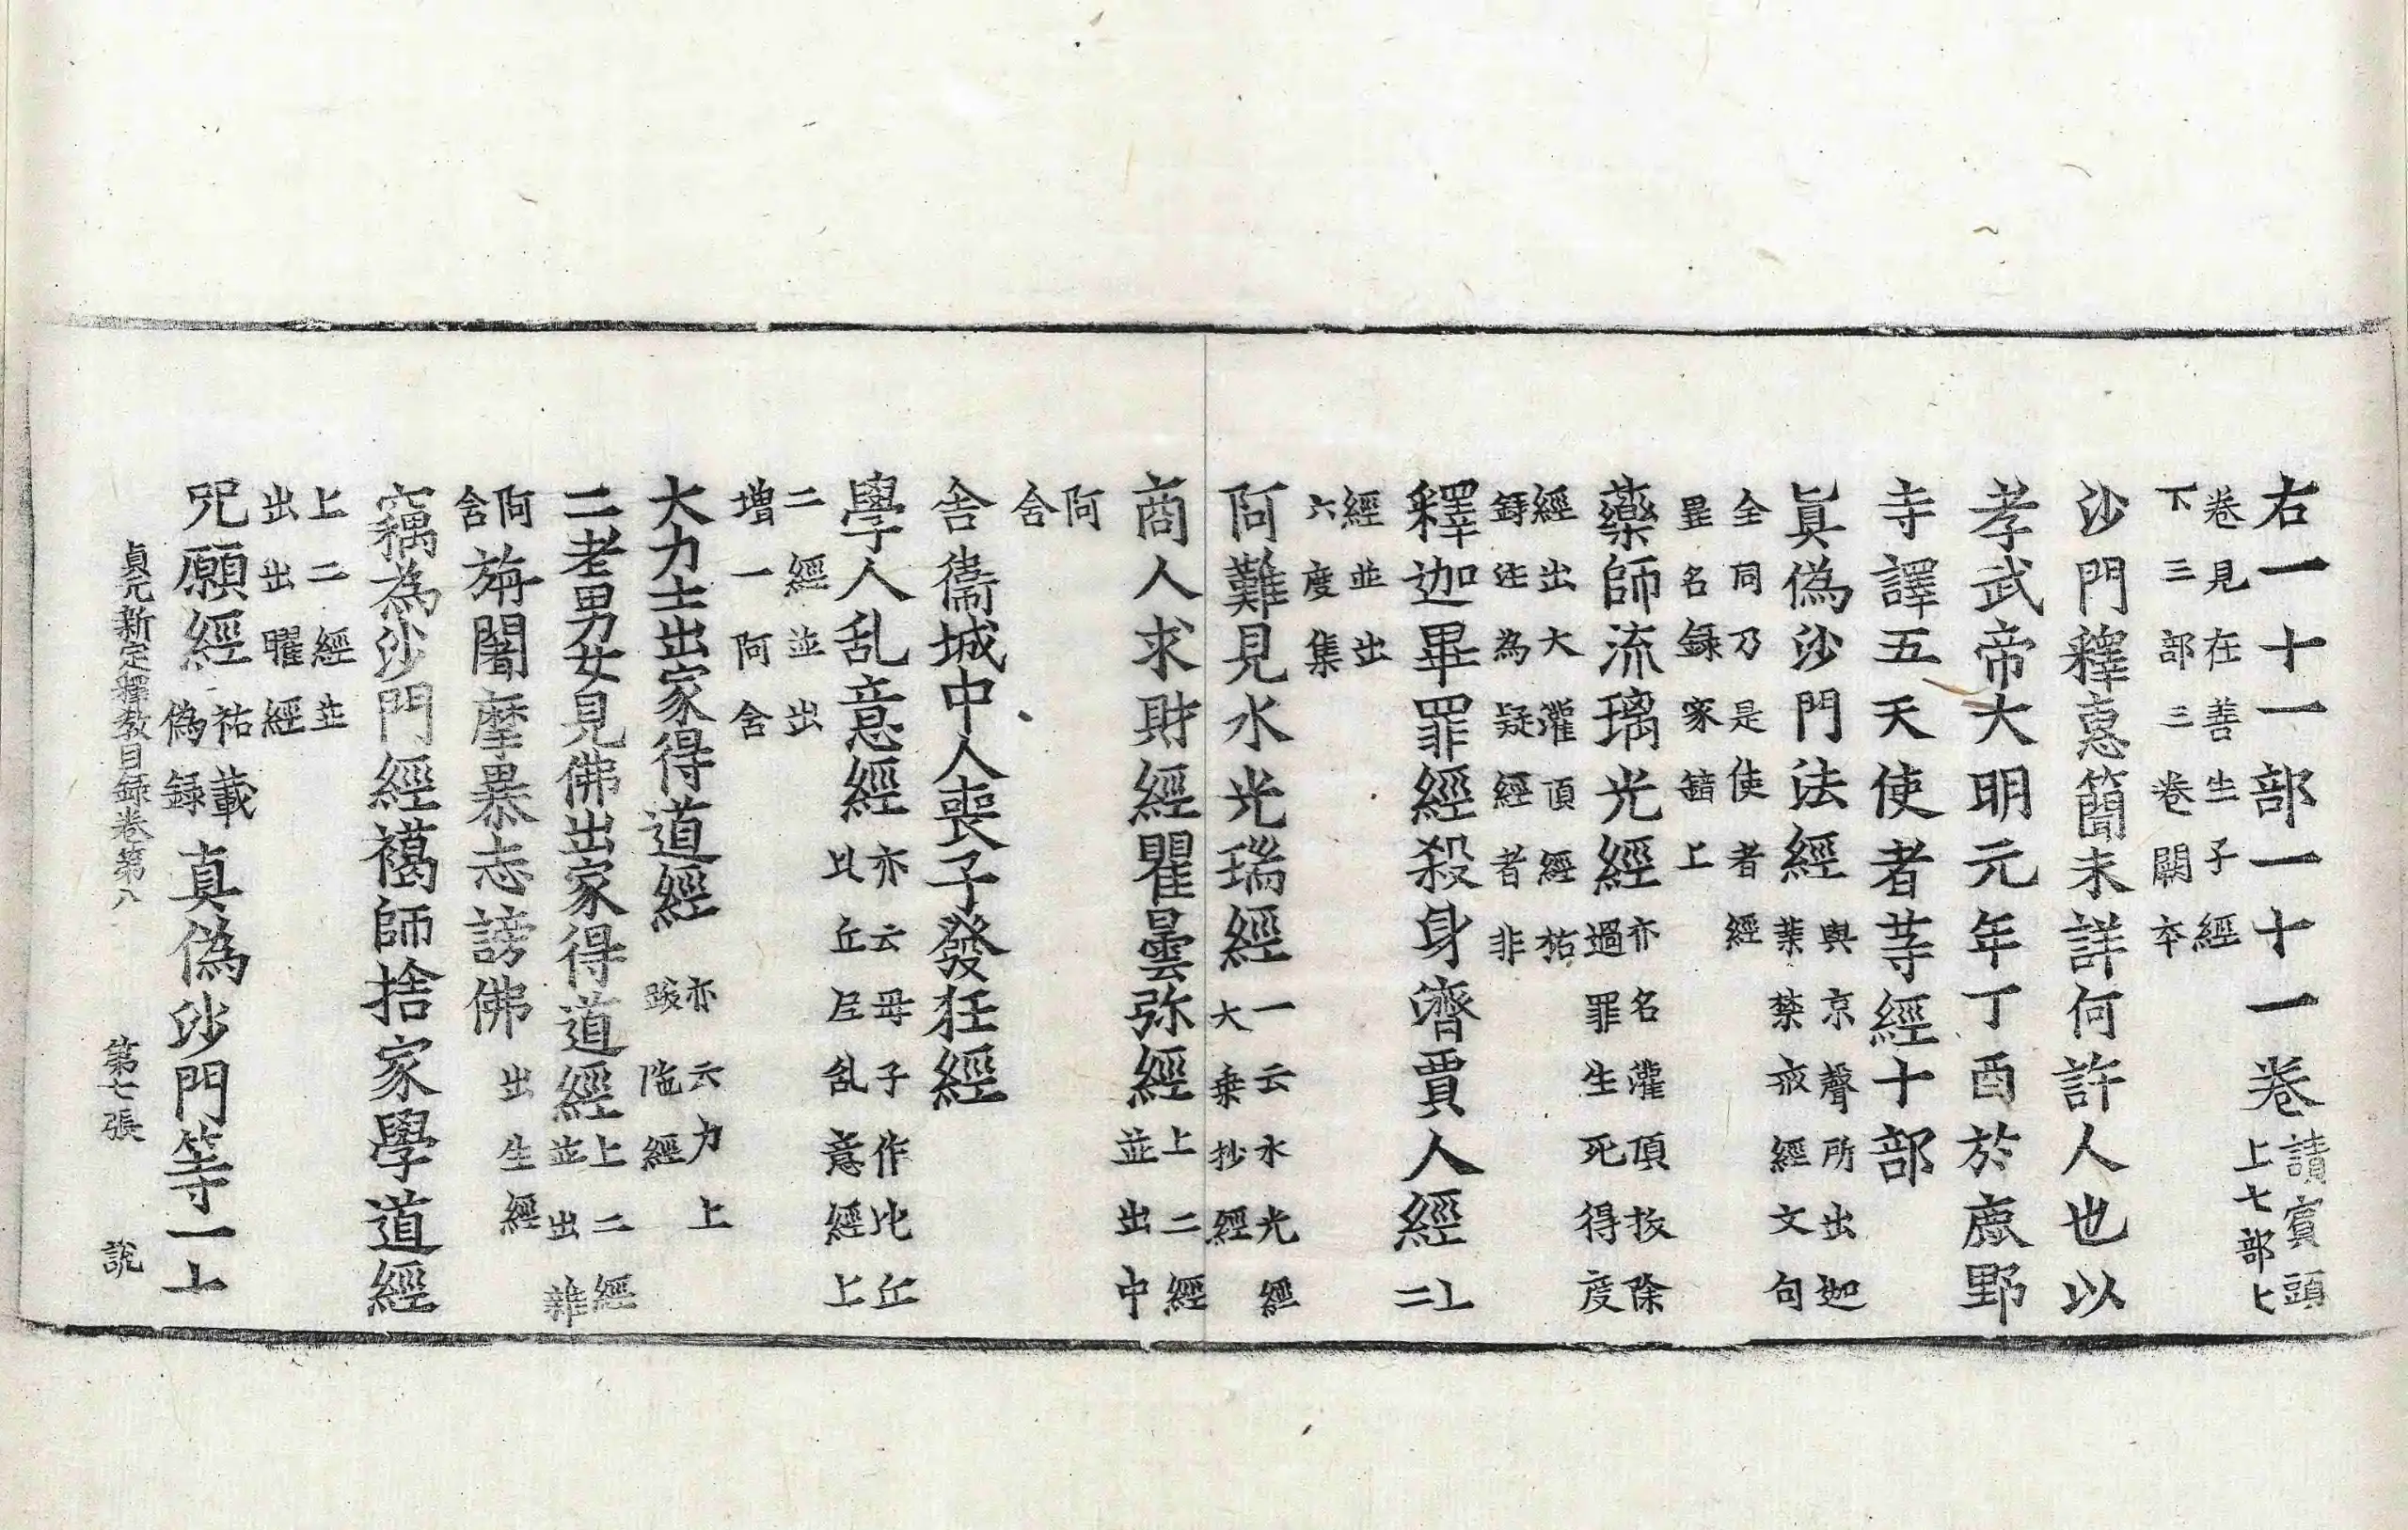 右一十一部一十一卷請賓頭上七部七
卷見在善生子經下三部三卷闕夲
沙門釋惠簡未詳何許人也以
孝武帝大明元年丁酉於鹿野
寺譯五天使者䓁經十部
眞偽沙門法經與京聲所出迦葉禁戒經文句
全同乃是使者經是名錄家錯上
藥師流璃光經亦名灌頂拔除過罪生死得度
經出大灌頂經祐錄注為疑經者非
釋迦畢罪經殺身濟賈人經上二
經並出六度集
阿難見水光瑞經一云水光經大乗抄經
商人求財經瞿曇弥經上二經並出中
阿含
舎衞城中人喪子發狂經
學人乱意經亦云毋子作比丘比丘尼乱意經上
二經並出增一阿含
大力士出家得道經亦云力上䟦陁經
二老男女見佛出家得道經上二經並出雜
阿含旃闍摩暴志謗佛出生經
竊為沙門經褐師捨家學道經
上二經並出出曜經
咒願經祐載偽録真偽沙門等一上
貞元新定釋教目録卷第八 第七張 說